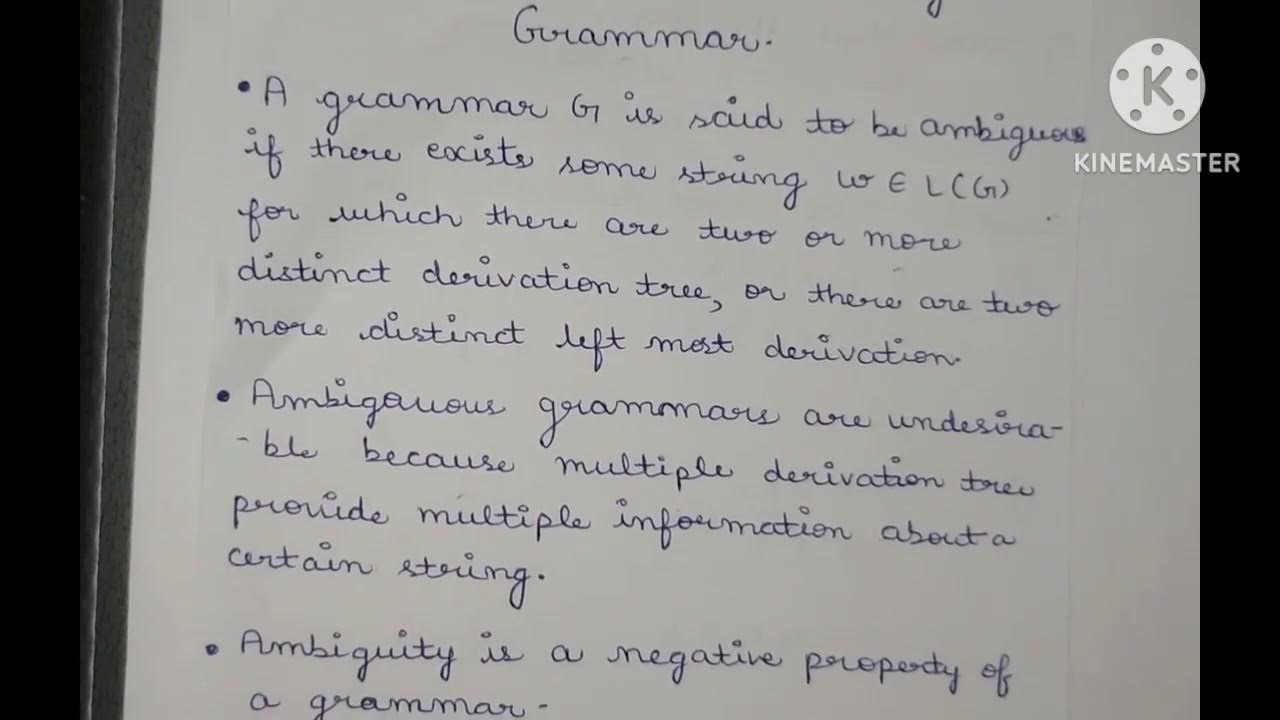 Grammar.
• A grammar G is said to be ambiguous
if there exists some string w ∈ L(G)
for which there are two or more
distinct derivation tree, or there are two
more distinct left most derivation.
• Ambigouous grammars are undesira-
-ble because multiple derivation tree
provide multiple information about a
certain string.
• Ambiguity is a negative property of
a grammar-
K
KINEMASTER